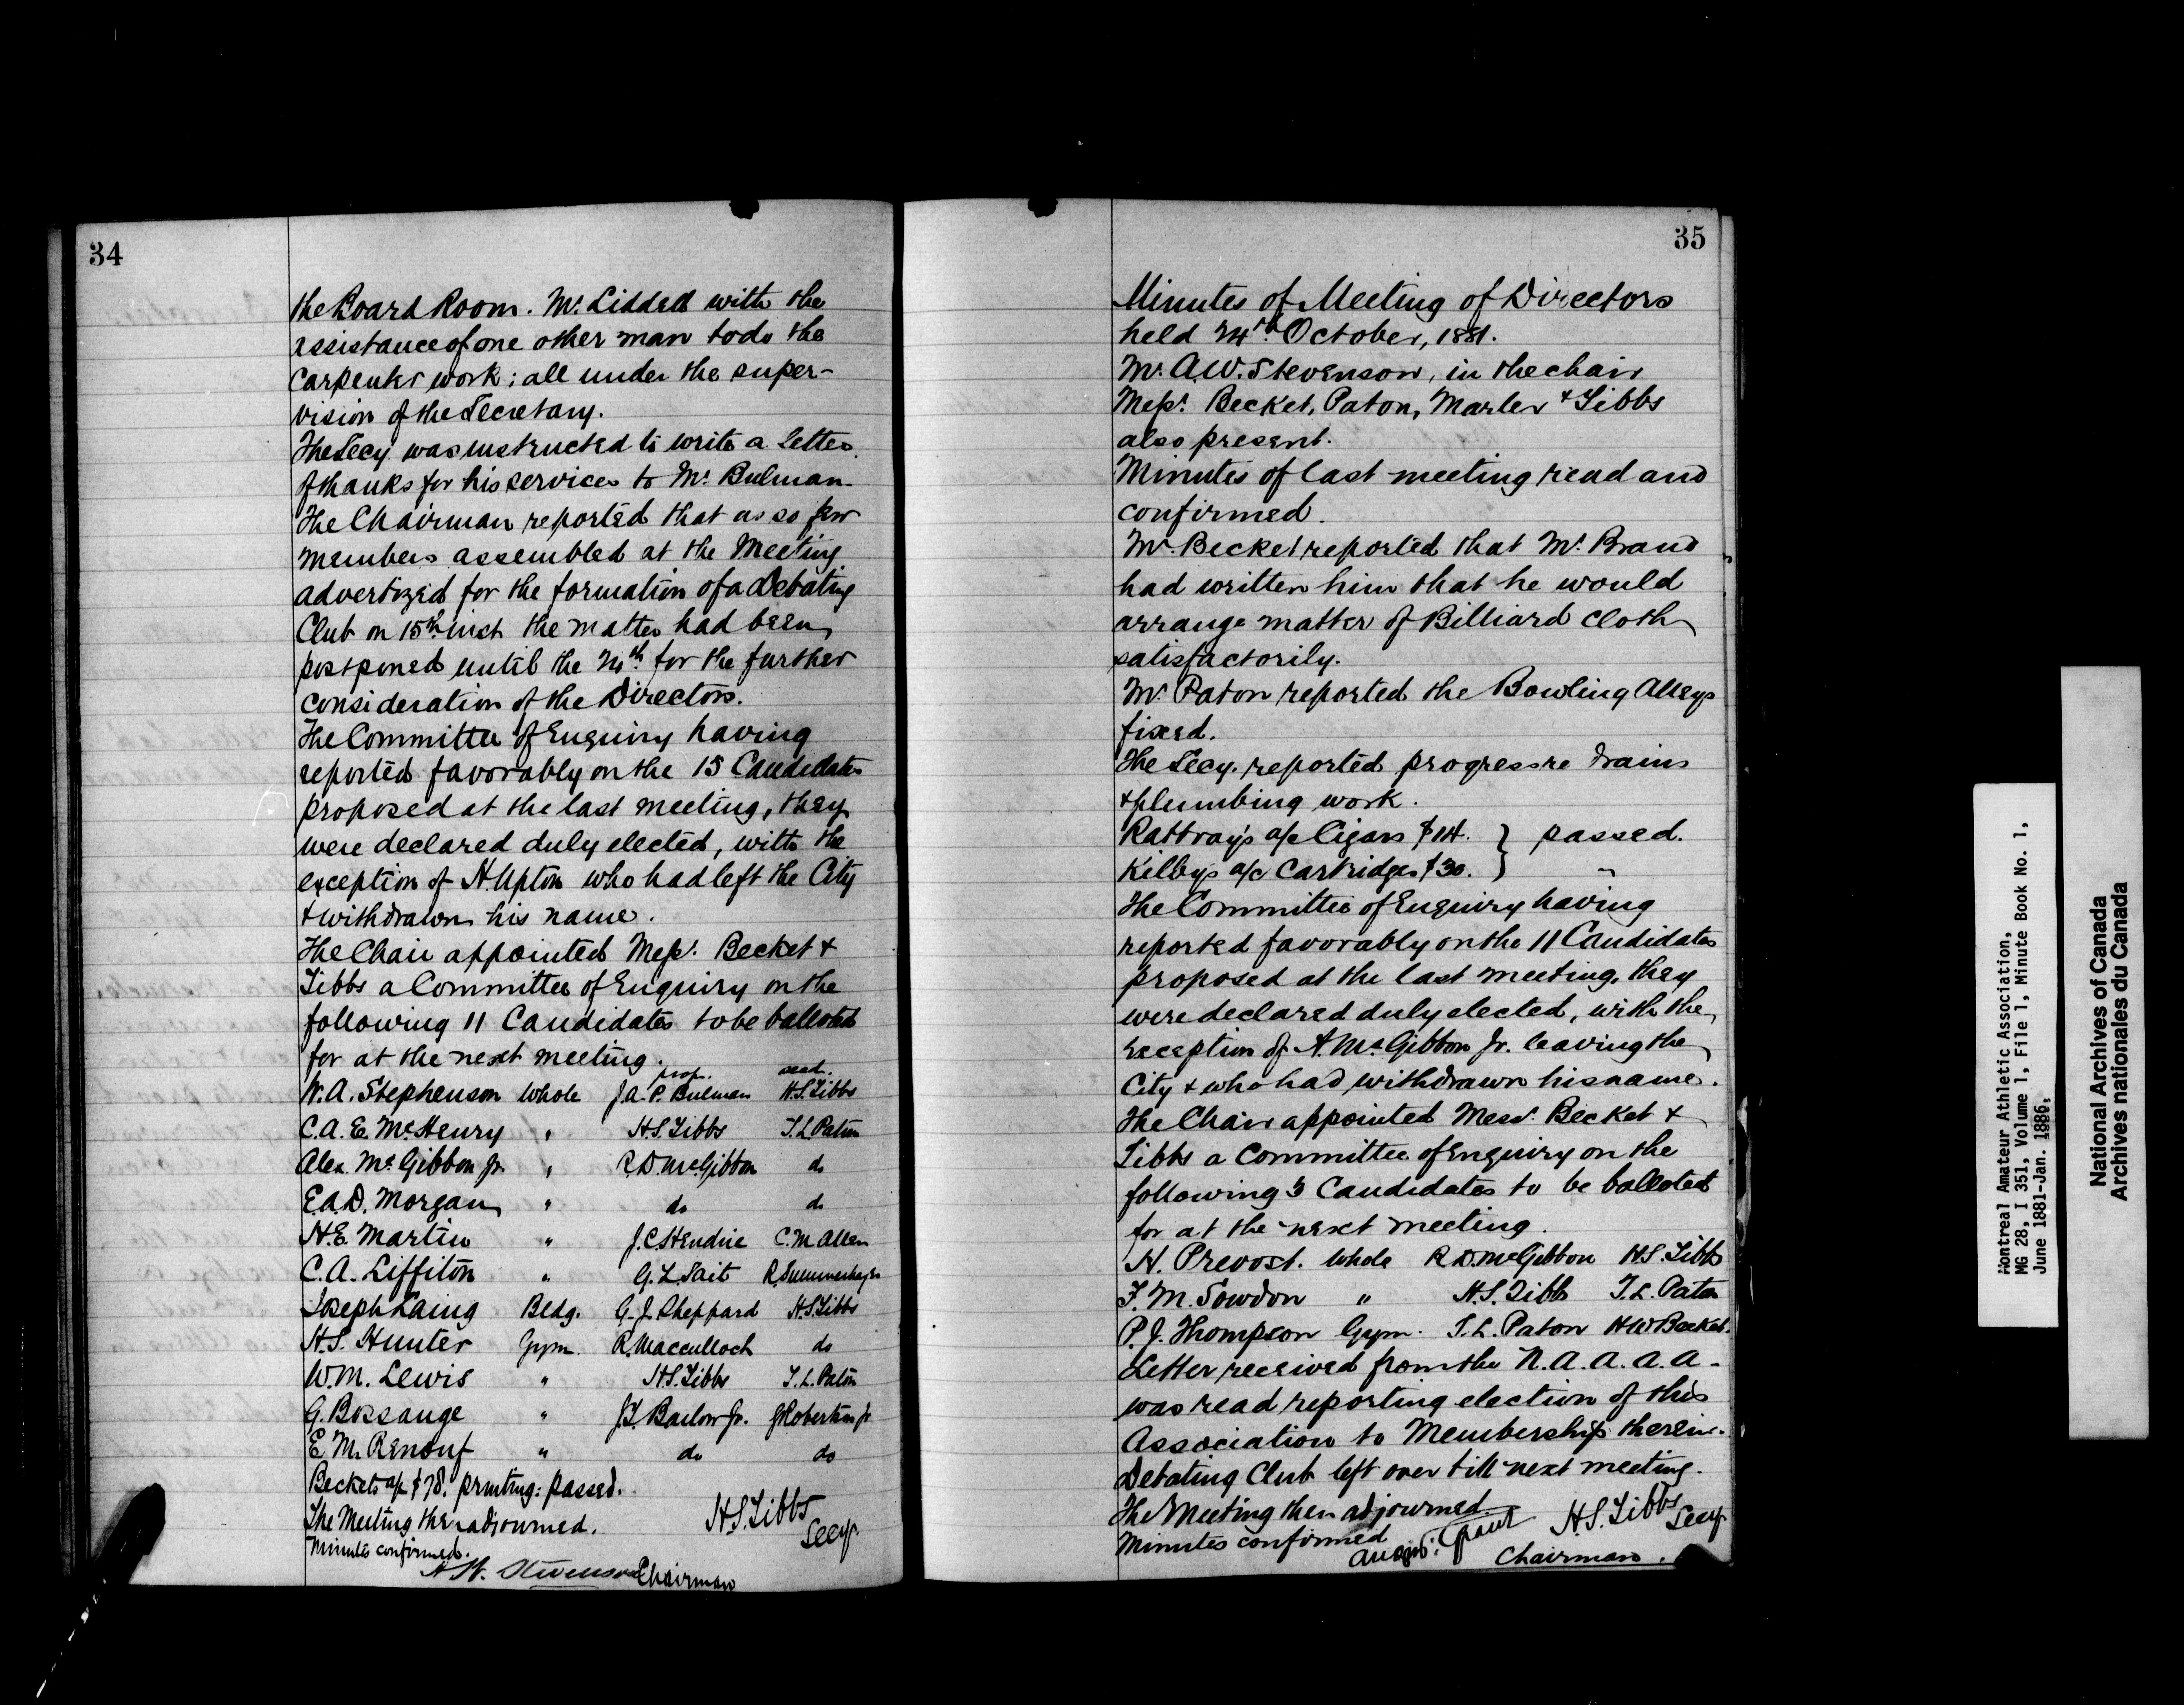 34
the Board Room. Mr. Liddell with the
assistance of one other man to do the
carpenter work; all under the super-
vision of the Secretary.
The Secy was instructed to write a letter
of thanks for his services to Mr. Bulman.
The Chairman reported that as so few
members assembled at the Meeting
advertized for the formation of a Debating
Club on 15th inst the matter had been
postponed until the 24th for the further
consideration of the Directors.
The Committee of Enquiry having
reported favorably on the 15 Candidates
proposed at the last meeting, they
were declared duly elected, with the
exception of H Upton who had left the City
& withdrawn his name.
The Chair appointed Messrs. Becket &
Tibbs a Committee of Enquiry on the
following 11 Candidates to be balloted
for at the next meeting.
prop. secd.
W. A. Stephenson Whole J. A. P. Bulman H.S. Tibbs
C. A. E. McHenry " H.S. Tibbs T.L. Paton
Alex. McGibbon Jr. " R D McGibbon do
E. A. D. Morgan " do do
H.E. Martin " J. C Hendrie C. M Allen
C. A. Liffiton " G. L. Sait R. Summerhayes
Joseph Laing Bldg. G. J. Sheppard H.S. Tibbs
H.S. Hunter Gym. R. Macculloch do
W. M. Lewis " H.S. Tibbs T.L. Paton
G. Bossange " J.T. Barlow Jr. J Robertson Jr
E M. Renouf " do do
Beckets a/c $78. printing: passed.
The Meeting then adjourned. H.S. Tibbs
Secy.
Minutes confirmed.
A. W. Stevenson Chairman
35
Minutes of Meeting of Directors
held 24th October, 1881.
Mr. A. W. Stevenson, in the chair
Messrs. Becket, Paton, Marler & Tibbs
also present.
Minutes of last meeting read and
confirmed.
Mr. Becket reported that Mr. Brand
had written him that he would
arrange matter of Billiard cloth
satisfactorily.
Mr. Paton reported the Bowling Alleys
fixed.
The Secy. reported progress re drains
& plumbing work.
Rattray's a/c Cigars $14. } passed.
Kilby's a/c Cartridges $30. } "
The Committee of Enquiry having
reported favorably on the 11 Candidates
proposed at the last meeting, they
were declared duly elected, with the
exception of A. McGibbon Jr. leaving the
City & who had withdrawn his name.
The Chair appointed Messrs. Becket &
Tibbs a Committee of Enquiry on the
following 3 Candidates to be balloted
for at the next meeting.
H. Prevost. Whole R D. McGibbon H.S. Tibbs
F. M. Sowdon " H.S. Tibbs T.L. Paton
P. J. Thompson Gym. T.L. Paton H W Becket.
Letter received from the N. A. A. A. A.
was read reporting election of this
Association to Membership therein.
Debating Club left over till next meeting.
The Meeting then adjourned H.S. Tibbs
Secy
Minutes confirmed
Angus Grant Chairman.
Montreal Amateur Athletic Association,
MG 28, I 351, Volume 1, File 1, Minute Book No. 1,
June 1881-Jan. 1886,
National Archives of Canada
Archives nationales du Canada